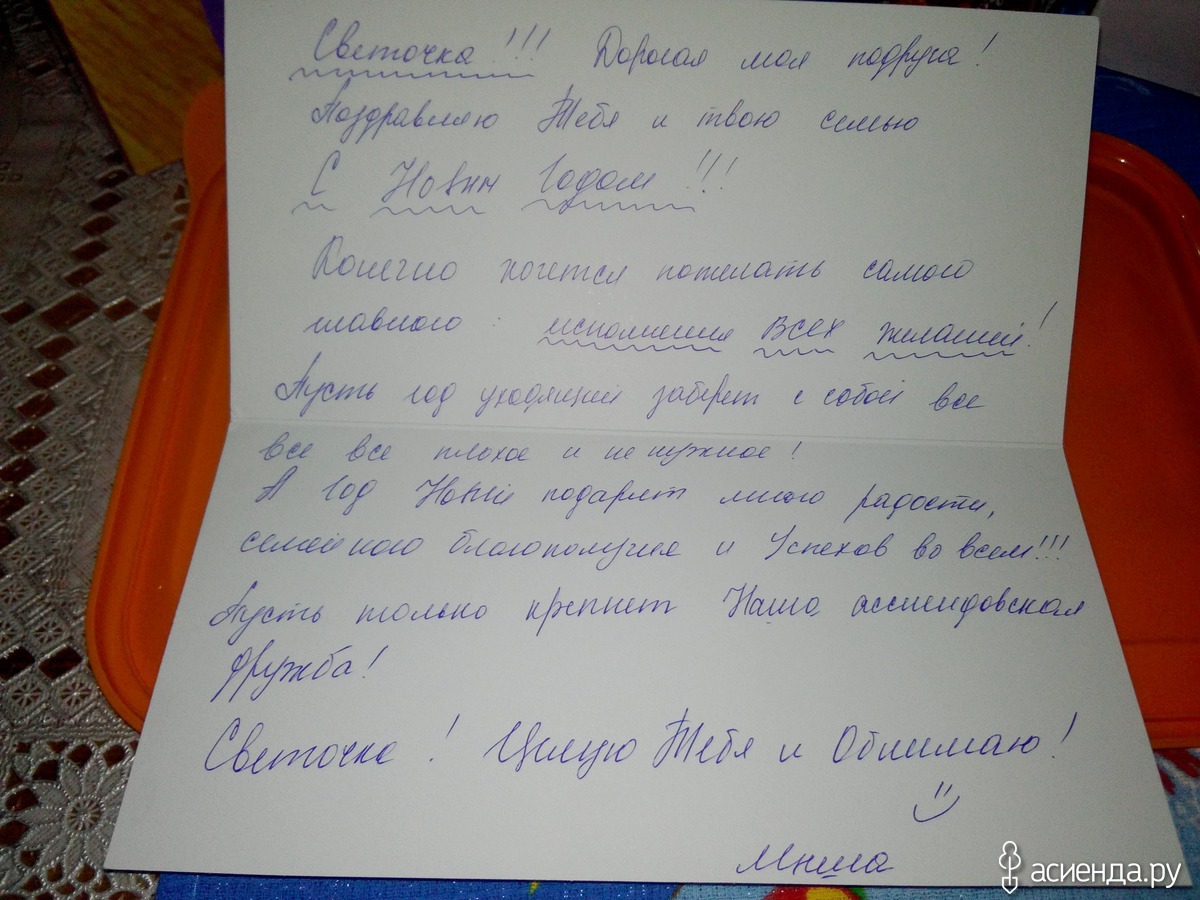 Светочка!!! Дорогая моя подруга!
Поздравляю Тебя и твою семью
С Новым Годом!!!
Конечно хочется пожелать самого
главного: исполнения Всех желаний!
Пусть год уходящий заберет с собой все
все все плохое и не нужное!
А Год Новый подарит много радости,
семейного благополучия и Успехов во всем!!!
Пусть только крепнет Наша ассиендовская
дружба!
Светочка! Целую Тебя и Обнимаю!
асиенда.ру